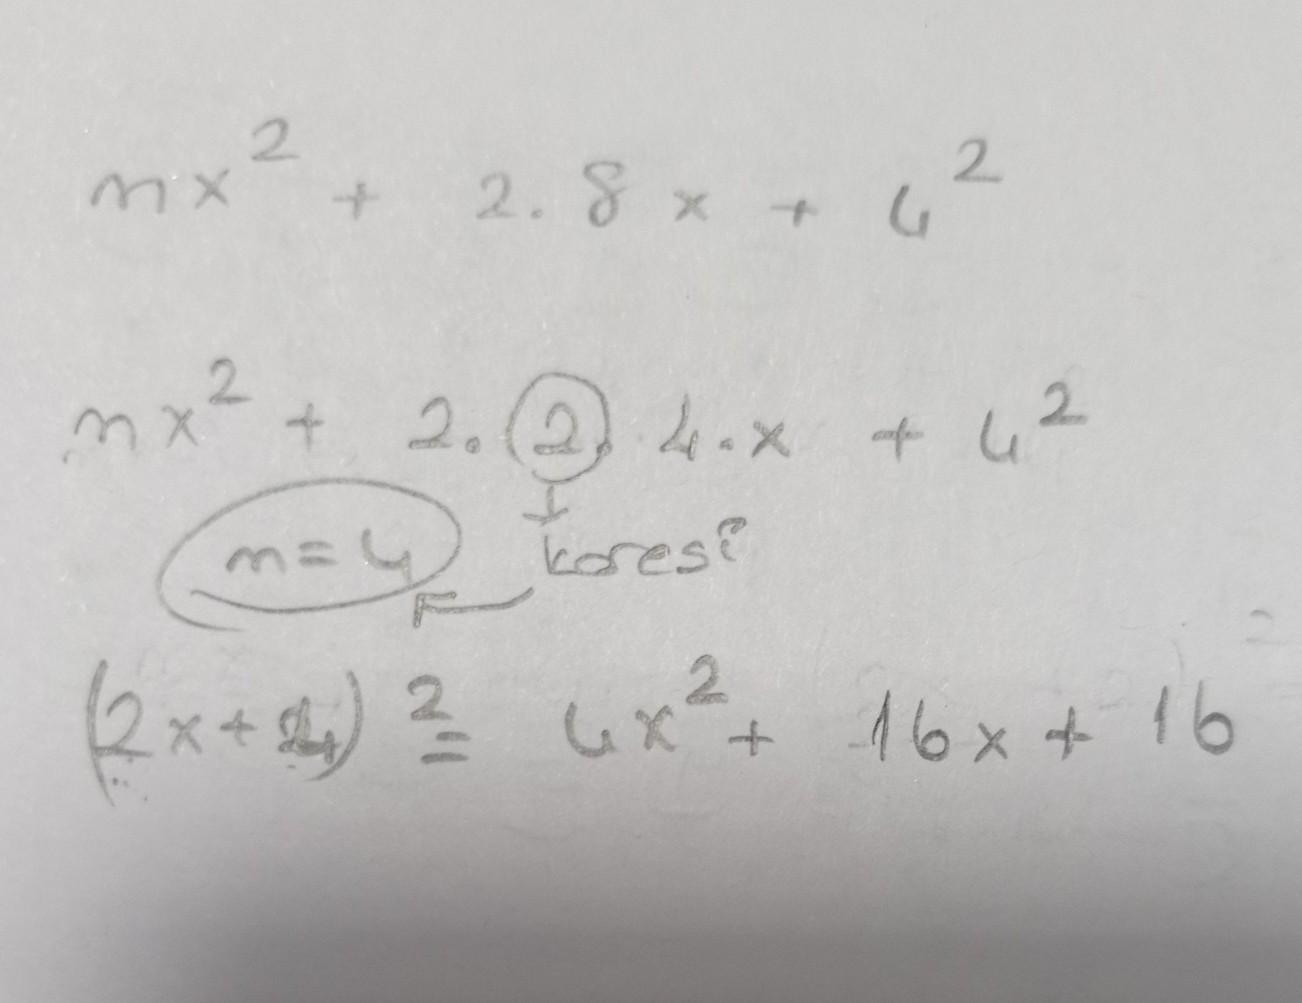 mx² + 2.8x + 4²
mx² + 2.2.4.x + 4²
m=4 karesi
(2x+4)² = 4x² + 16x + 16